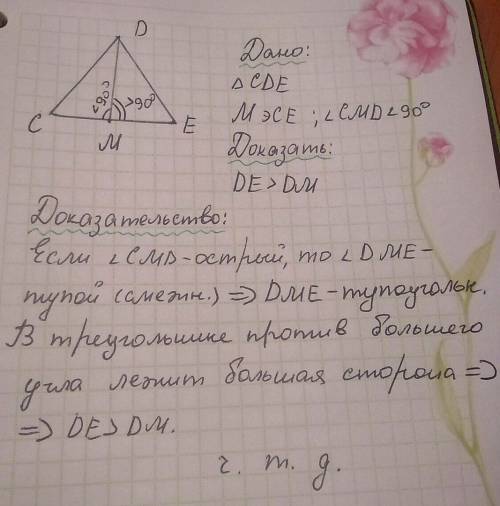 D
Дано:
△CDE
<90° >90°
M ∋ CE ; ∠CMD<90°
C
E
M
Доказать:
DE>DM
Доказательство:
Если ∠CMD-острый, то ∠DME-
тупой (смежн.) => DME-тупоугольн.
В треугольнике против большего
угла лежит большая сторона =>
=> DE>DM.
ч. т. д.